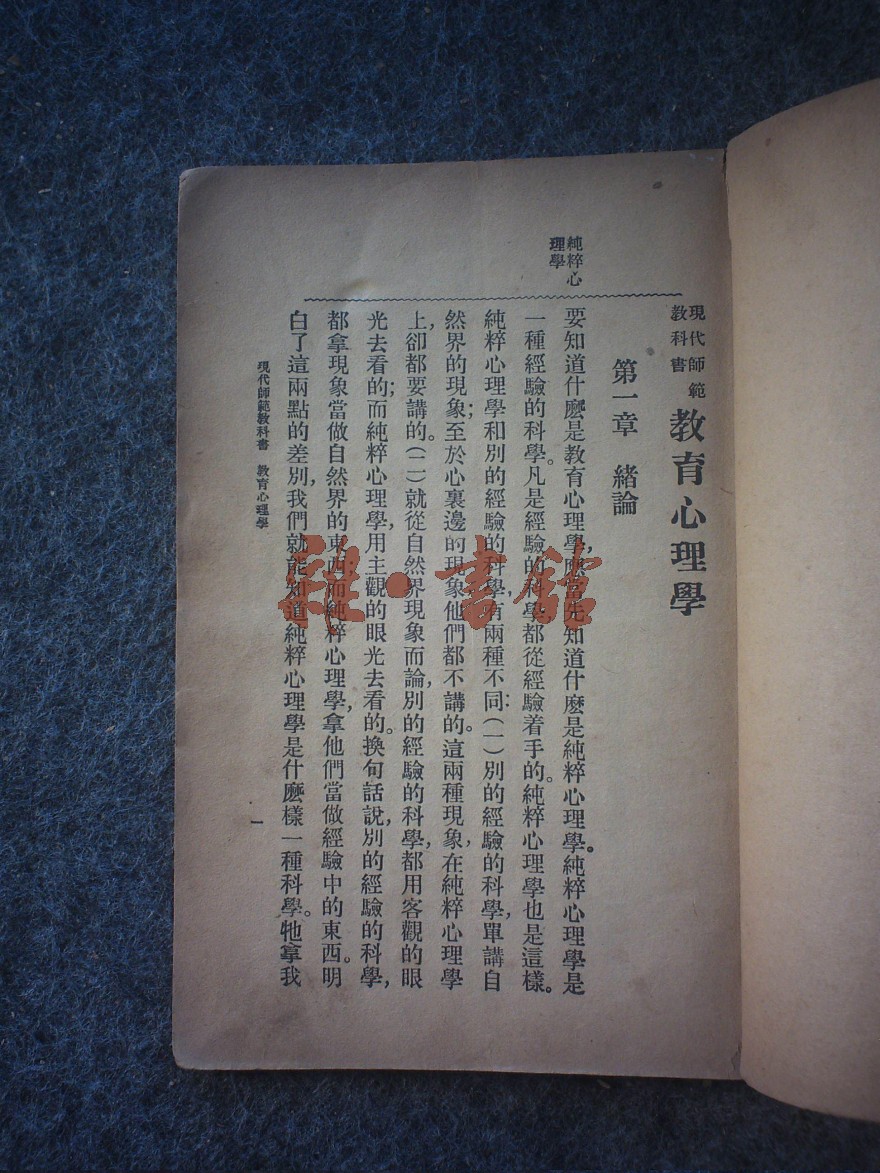 現代師範
教科書
教育心理學
第一章　緒論
純粹心
理學
要知道什麼是教育心理學，應當先知道什麼是純粹心理學。純粹心理學是
一種經驗的科學。凡是經驗的科學，都從經驗着手的。純粹心理學也是這樣。
純粹心理學和別的經驗的科學，有兩種不同：(一)別的經驗的科學，單講自
然界的現象；至於心裏邊的現象他們都不講的。這兩種現象，在純粹心理學
上，卻都要講的。(二)就從自然界現象而論，別的經驗的科學，都用客觀的眼
光去看的；而純粹心理學，用主觀的眼光去看的。換句話說，別的經驗的科學，
都拿現象當做自然界的東西；而純粹心理學，拿他們當做經驗中的東西。明
白了這兩點的差別，我們就能知道純粹心理學是什麼樣一種科學。牠拿我
現代師範教科書　教育心理學
一
雜·書館